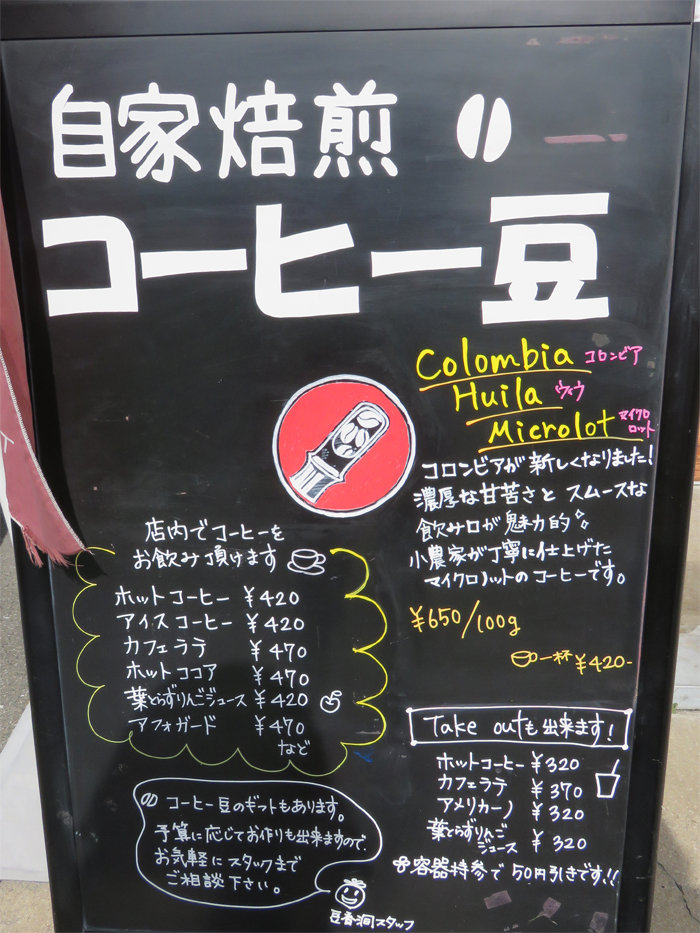 自家焙煎
コーヒー豆
Colombia コロンビア
Huila ウィラ
Microlot マイクロ
ロット
コロンビアが新しくなりました!
濃厚な甘苦さと スムースな
飲み口が魅力的
小農家が丁寧に仕上げた
マイクロロットのコーヒーです。
¥650/100g
一杯 ¥420-
店内でコーヒーを
お飲み頂けます
ホットコーヒー ¥420
アイスコーヒー ¥420
カフェラテ ¥470
ホットココア ¥470
葉とらずりんごジュース ¥420
アフォガード ¥470
など
Take outも出来ます!
ホットコーヒー ¥320
カフェラテ ¥370
アメリカーノ ¥320
葉とらずりんご
ジュース ¥320
容器持参で50円引きです!!
コーヒー豆のギフトもあります。
予算に応じてお作りも出来ますので、
お気軽にスタッフまで
ご相談下さい。
豆香洞スタッフ